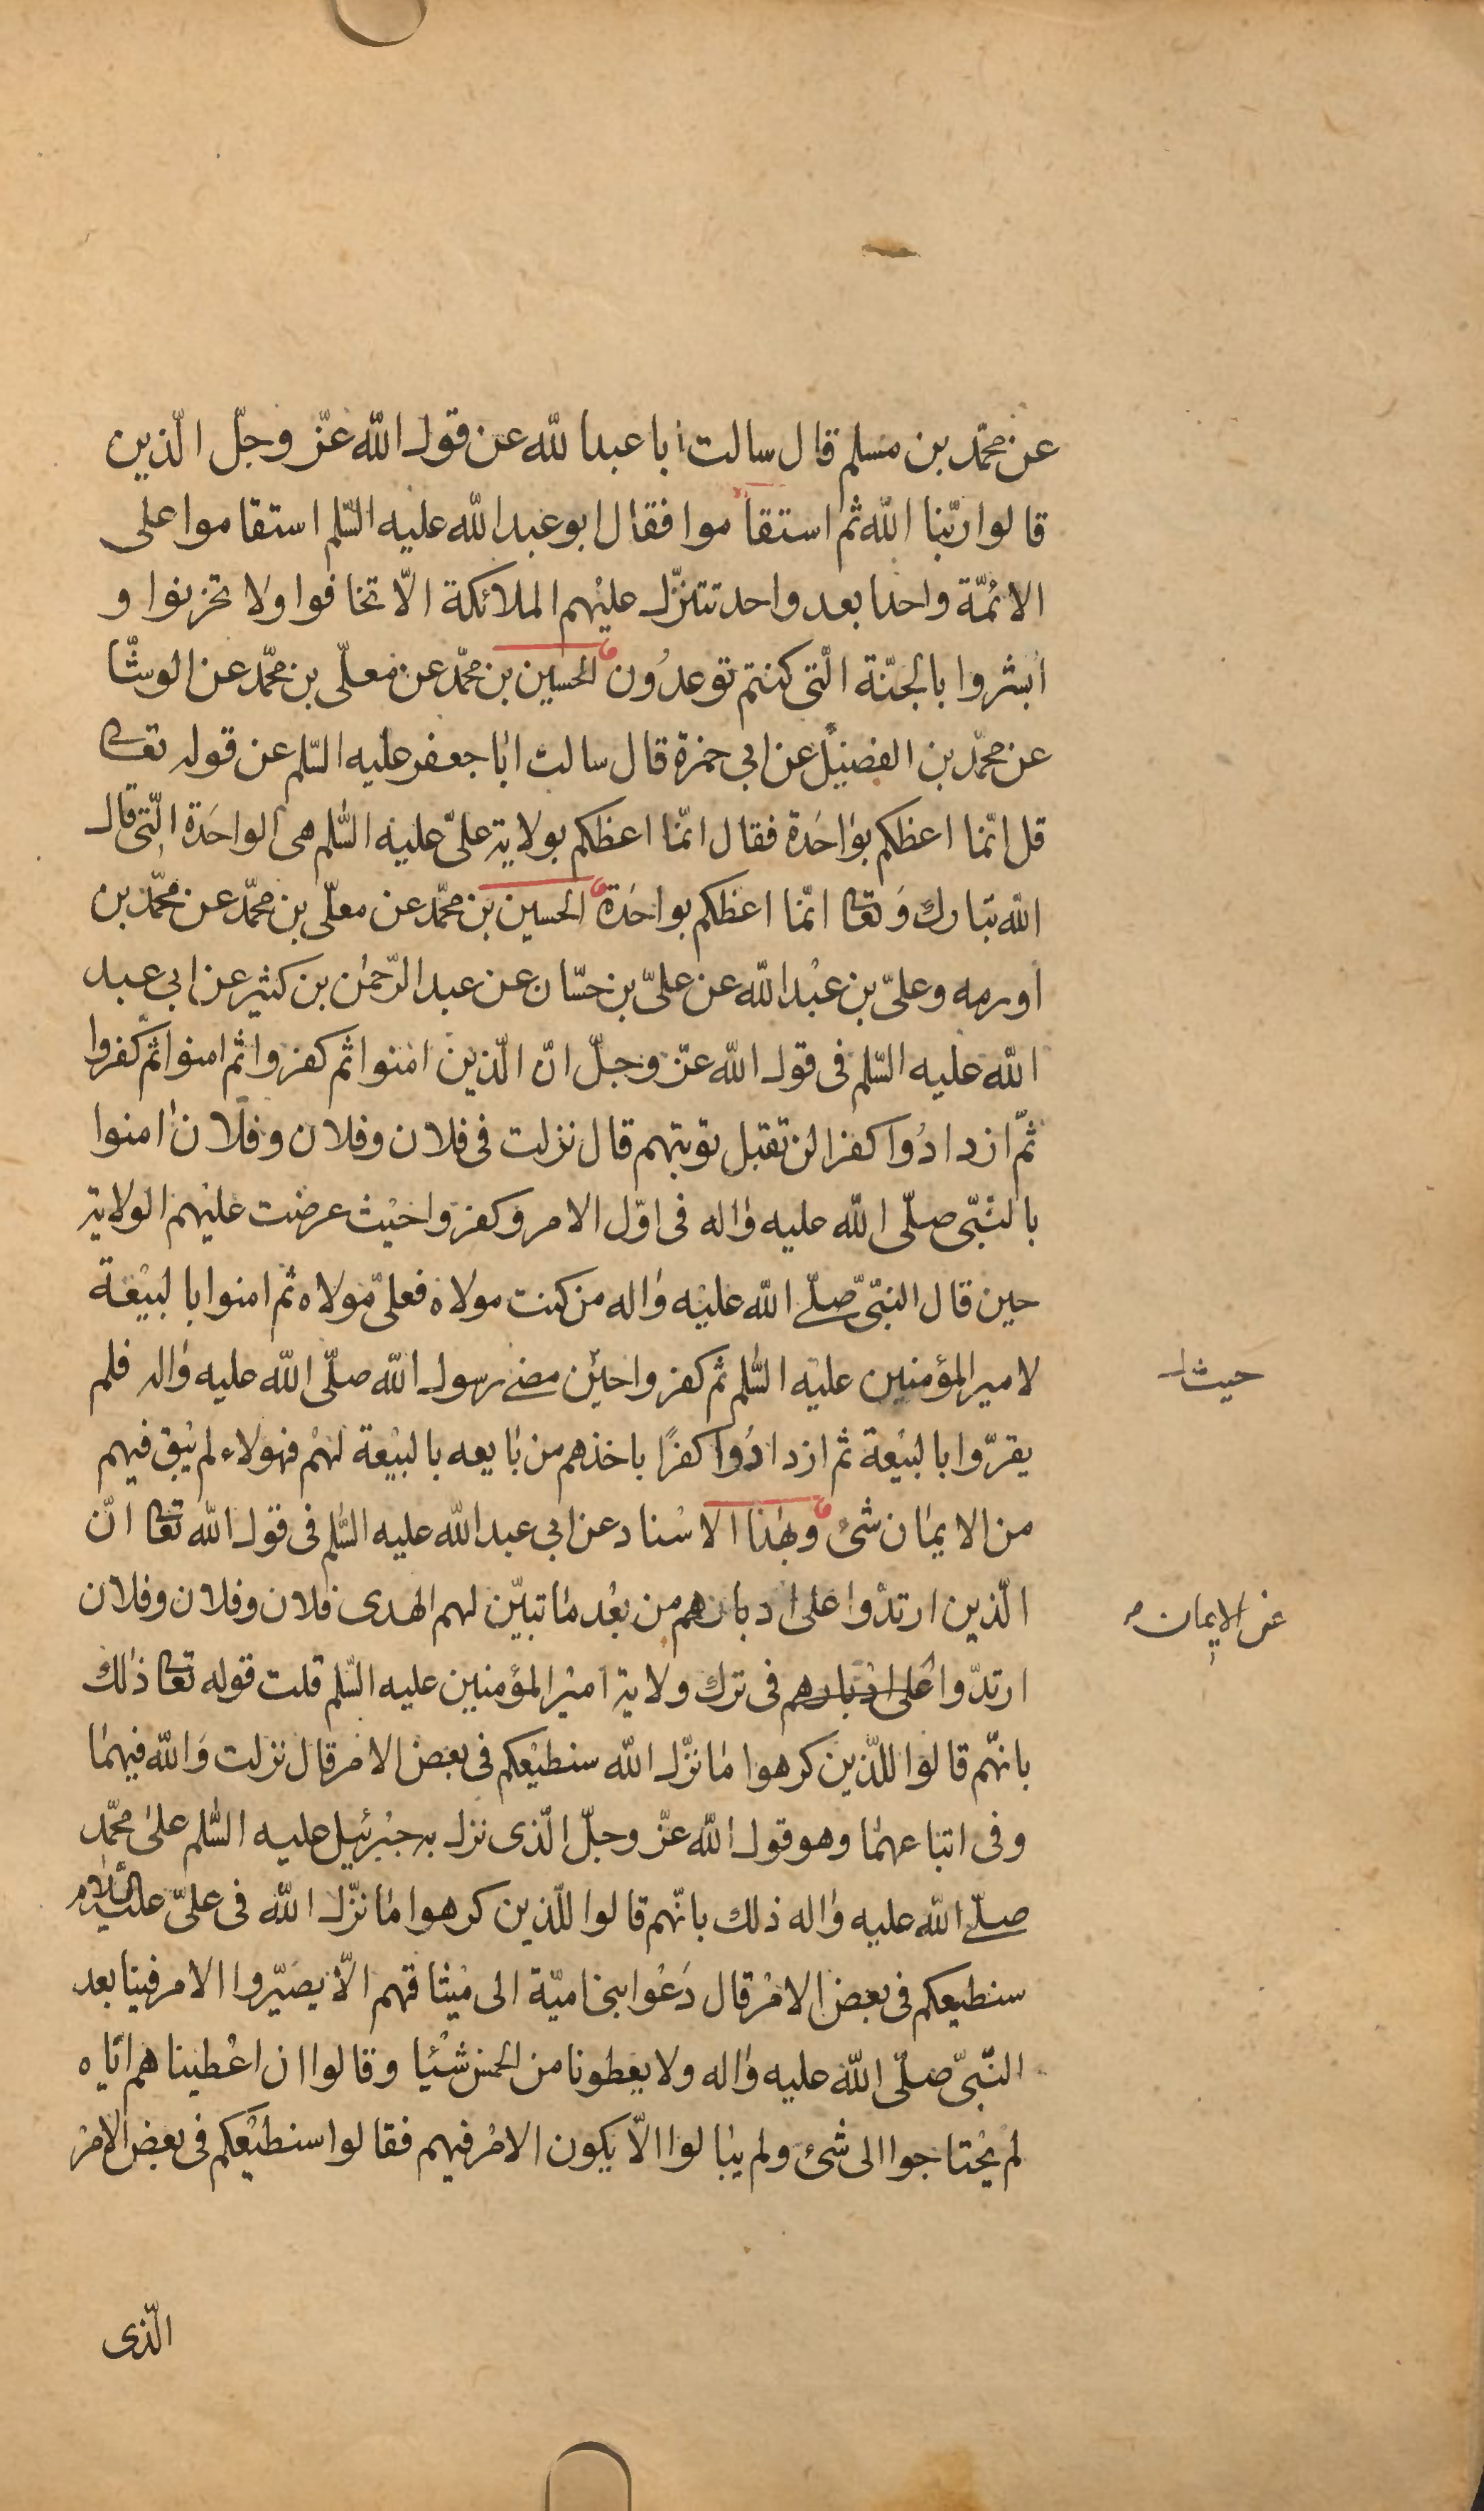 عن محمّد بن مسلم قال سالت ابا عبد الله عن قول الله عزّ وجلّ الّذين
قالوا ربّنا الله ثم استقاموا فقال ابو عبد الله عليه السّلم استقاموا على
الائمّة واحدا بعد واحد تتنزّل عليهم الملائكة الّا تخافوا ولا تحزنوا و
ابشروا بالجنّة الّتى كنتم توعدون الحسين بن محمّد عن معلّى بن محمّد عن الوشّا
عن محمّد بن الفضيل عن ابي حمزة قال سالت ابا جعفر عليه السّلم عن قوله تعا
قل انّما اعظكم بواحدة فقال انّما اعظكم بولاية علىّ عليه السّلم هى الواحدة الّتى قال
الله تبارك وتعا انّما اعظكم بواحدة الحسين بن محمّد عن معلّى بن محمّد عن محمّد بن
اورمه وعلىّ بن عبد الله عن علىّ بن حسّان عن عبد الرّحمٰن بن كثير عن ابي عبد
الله عليه السّلم فى قول الله عزّ وجلّ انّ الّذين امنوا ثم كفروا ثم امنوا ثم كفروا
ثمّ ازدادوا كفرا لن تقبل توبتهم قال نزلت فى فلان وفلان وفلان امنوا
بالنّبىّ صلّى الله عليه واله فى اوّل الامر وكفروا حيث عرضت عليهم الولاية
حين قال النبىّ صلّى الله عليه واله من كنت مولاه فعلىّ مولاه ثم امنوا بالبيعة
لامير المؤمنين عليه السّلم ثم كفروا حين مضى رسول الله صلّى الله عليه واله فلم
حيث
يقرّوا بالبيعة ثم ازدادوا كفرًا باخذهم من بايعه بالبيعة لهم فهولاء لم يبق فيهم
من الايمان شئ وبهذا الاسناد عن ابي عبد الله عليه السّلم فى قول الله تعا انّ
الّذين ارتدّوا على ادبارهم من بعد ما تبيّن لهم الهدى فلان وفلان وفلان
عن الايمان
ارتدّوا على ادبارهم فى ترك ولاية امير المؤمنين عليه السّلم قلت قوله تعا ذلك
بانّهم قالوا للّذين كرهوا ما نزّل الله سنطيعكم فى بعض الامر قال نزلت والله فيهما
وفى اتباعهما وهو قول الله عزّ وجلّ الّذى نزل به جبرئيل عليه السّلم على محمّد
صلّى الله عليه واله ذلك بانّهم قالوا للّذين كرهوا ما نزّل الله فى علىّ عليه السّلام
سنطيعكم فى بعض الامر قال دعوا بنى اميّة الى ميثاقهم الّا يصيّروا الامر فينا بعد
النّبىّ صلّى الله عليه واله ولا يعطونا من الخمس شيئا وقالوا ان اعطيناهم ايّاه
لم يحتاجوا الى شئ ولم يبالوا الّا يكون الامر فيهم فقالوا سنطيعكم فى بعض الامر
الّذى